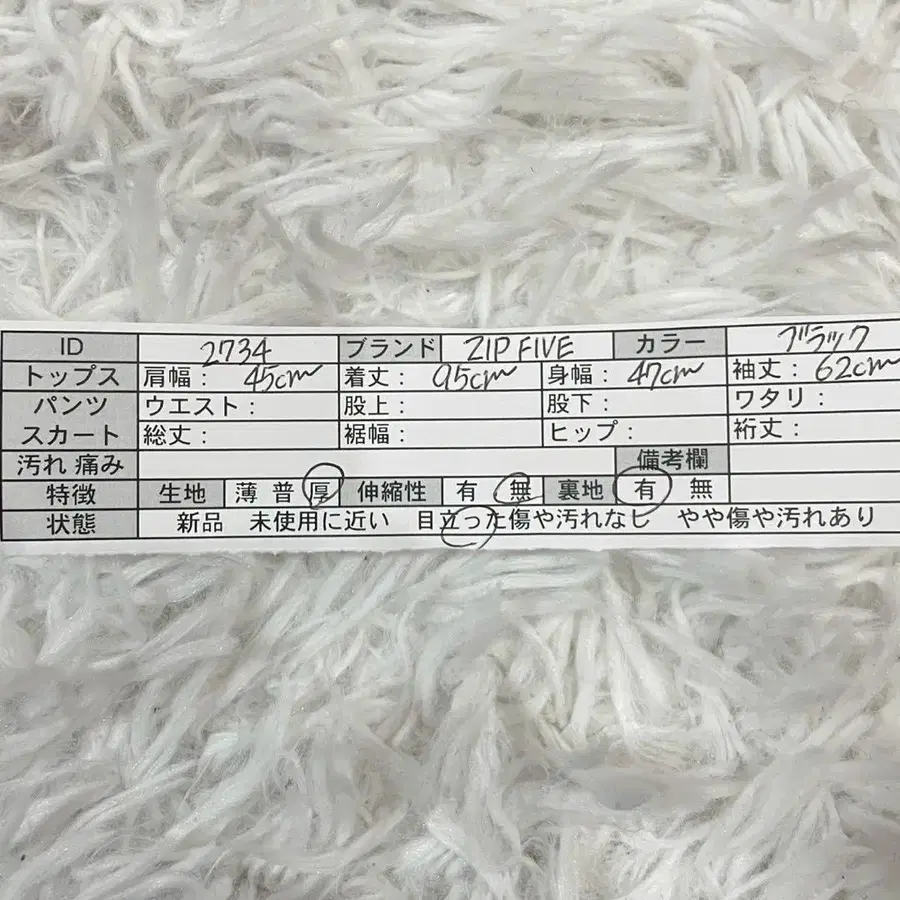 ID 2734 ブランド ZIP FIVE カラー ブラック
トップス 肩幅： 45cm 着丈： 95cm 身幅： 47cm 袖丈： 62cm
パンツ ウエスト： 股上： 股下： ワタリ：
スカート 総丈： 裾幅： ヒップ： 裄丈：
汚れ 痛み 備考欄
特徴 生地 薄 普 厚 伸縮性 有 無 裏地 有 無
状態 新品 未使用に近い 目立った傷や汚れなし やや傷や汚れあり